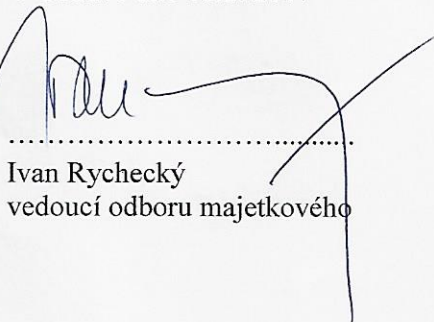 ........................................
Ivan Rychecký
vedoucí odboru majetkového